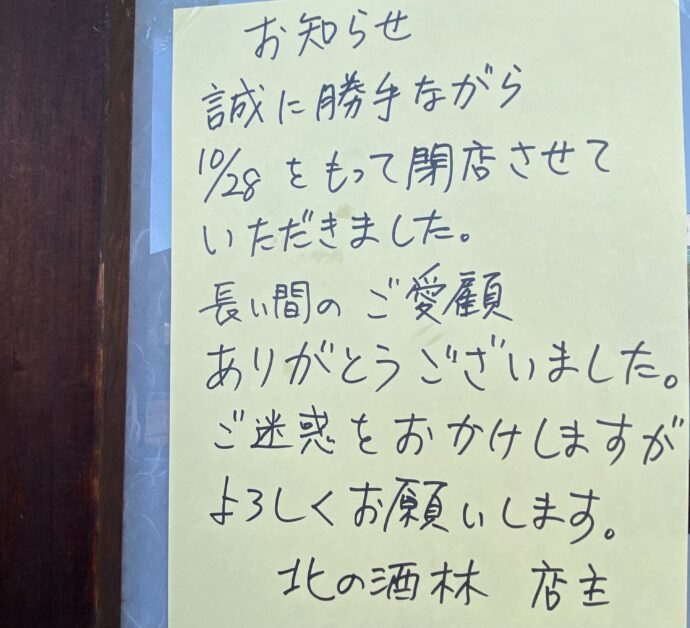 お知らせ
誠に勝手ながら
10/28をもって閉店させて
いただきました。
長い間のご愛顧
ありがとうございました。
ご迷惑をおかけしますが
よろしくお願いします。
北の酒林 店主